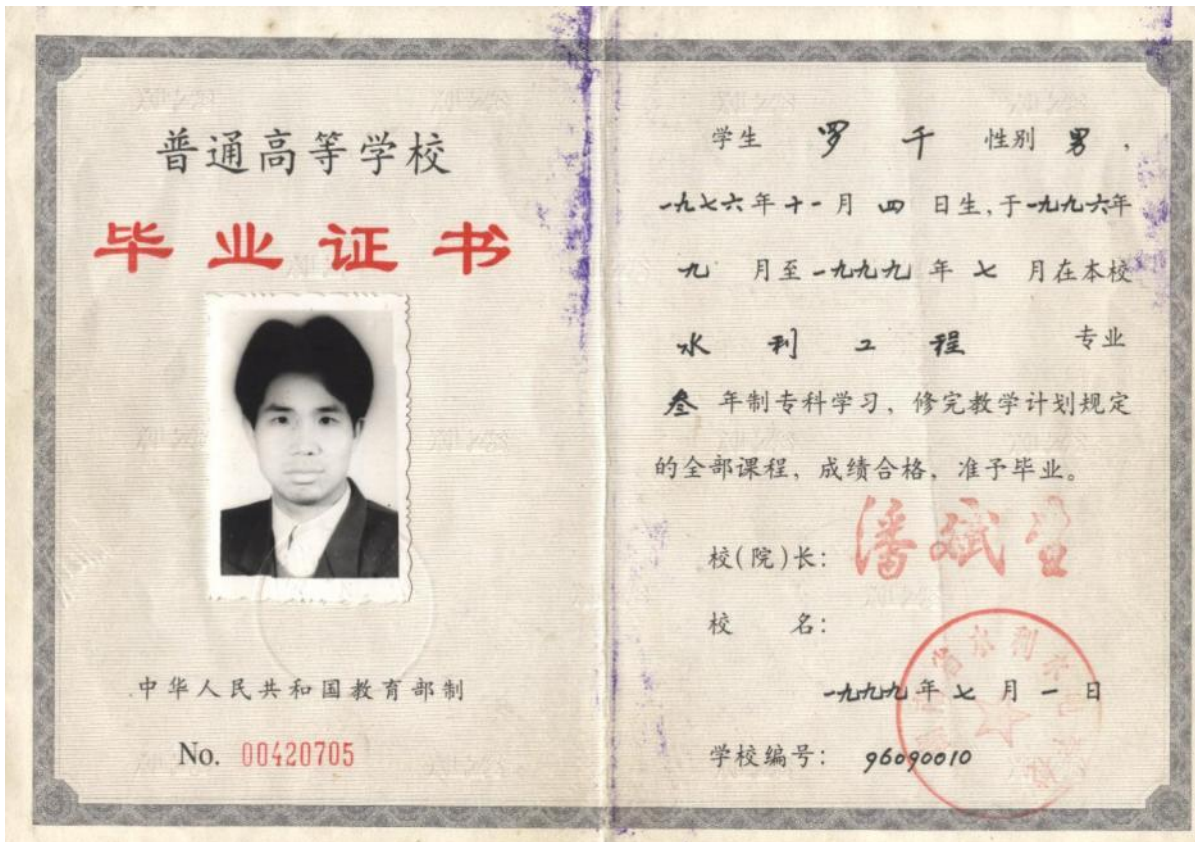 普通高等学校
毕业证书
中华人民共和国教育部制
No. 00420705
学生 罗千 性别 男,
一九七六年十一月四日生,于一九九六年
九月至一九九九年七月在本校
水利工程 专业
叁年制专科学习，修完教学计划规定
的全部课程，成绩合格，准予毕业。
校(院)长:
校 名:
省水利水
一九九九年七月一日
学校编号: 96090010